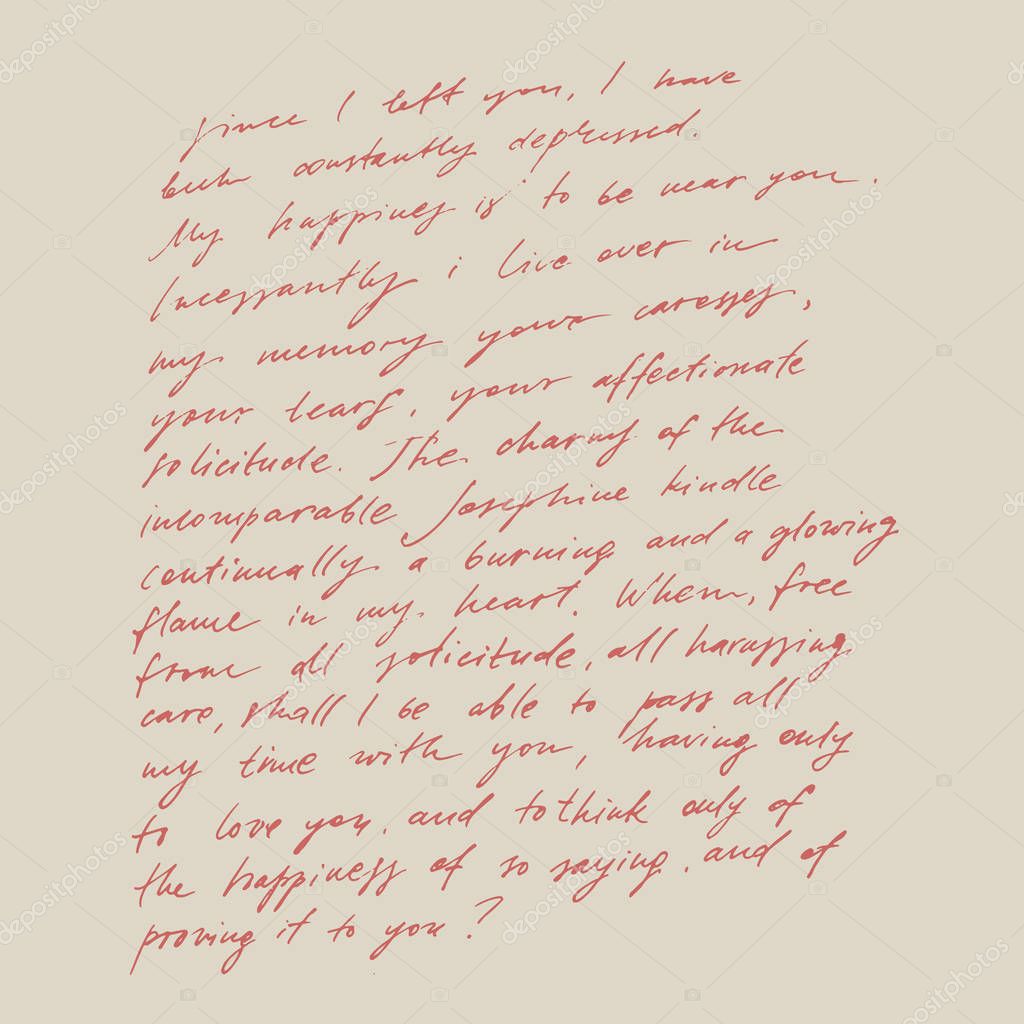 Since I left you, I have
been constantly depressed.
My happines is to be near you.
Incessantly i live over in
my memory your caresses,
your tears, your affectionate
solicitude. The charms of the
incomparable Josephine kindle
continually a burning and a glowing
flame in my heart. When, free
from all solicitude, all harassing
care, shall I be able to pass all
my time with you, having only
to love you, and to think only of
the happiness of so saying, and of
proving it to you?
depositphotos